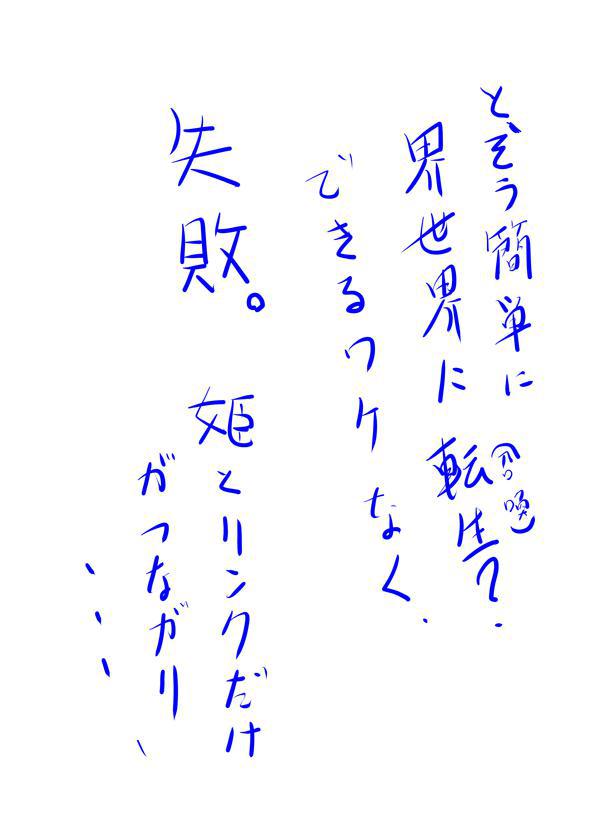 と、そう簡単に
界世界に転生?
(召喚)
できるワケなく.
失敗。
姫とリンクだけ
がつながり、
・・・